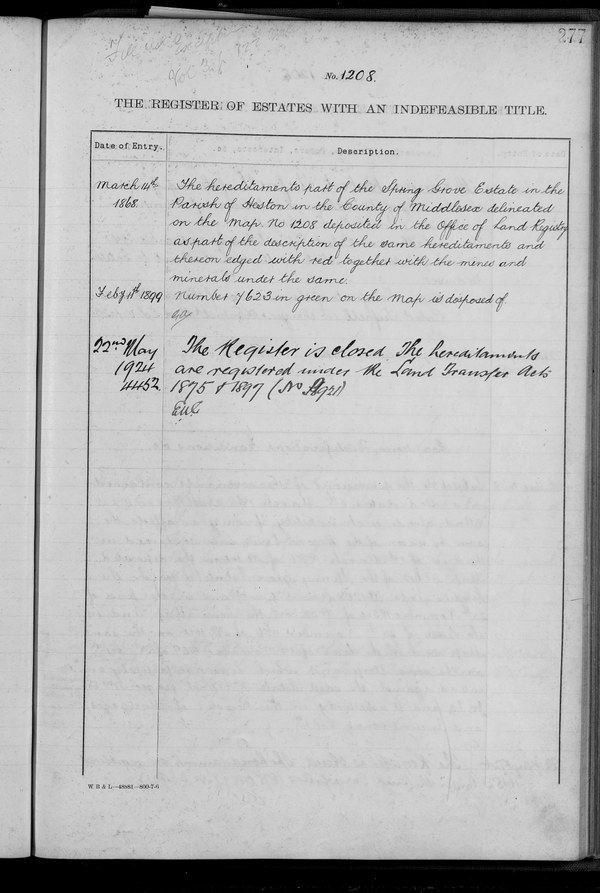 277
No. 1208
THE REGISTER OF ESTATES WITH AN INDEFEASIBLE TITLE.
Date of Entry. Description.
March 14th The hereditaments part of the Spring Grove Estate in the
1868 Parish of Heston in the County of Middlesex delineated
on the Map No 1208 deposited in the Office of Land Registry
as part of the description of the same hereditaments and
thereon edged with red together with the mines and
minerals under the same.
Feby 11th 1899 Number 7623 in green on the Map is disposed of
22nd May The Register is closed. The hereditaments
1924 are registered under the Land Transfer Acts
4452 1875 & 1897 (No
W B & L.—46881—800-7-6